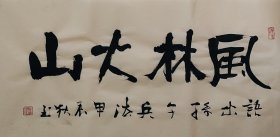 風林火山
語出孫子兵法甲辰秋